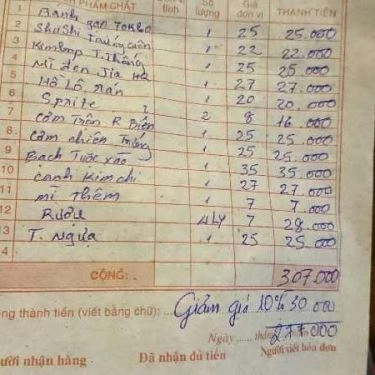 PHẨM CHẤT tính Số lượng Giá đơn vị THÀNH TIỀN
1 Bánh gạo Tokbo 1 25 25.000
2 Shushi Trường Cuốn 1 22 22.000
3 Kimbap T. Thống 1 25 25.000
4 Mì đen Jia Ha 1 27 27.000
5 Hồ Lô rán 1 20 20.000
6 Sprite 2 8 16.000
7 Cơm Trộn R Biển 1 25 25.000
8 Cơm chiên Trứng 1 25 25.000
9 Bạch Tuộc xào 1 35 35.000
10 Canh Kim chi 1 27 27.000
11 mì thêm 1 7 7.000
12 Rượu 4 Ly 7 28.000
13 T. Ngựa 1 25 25.000
14
CỘNG: 307.000
ng thành tiền (viết bằng chữ): Giảm giá 10% 30 000
Ngày thán 277.000
ười nhận hàng Đã nhận đủ tiền Người viết hóa đơn